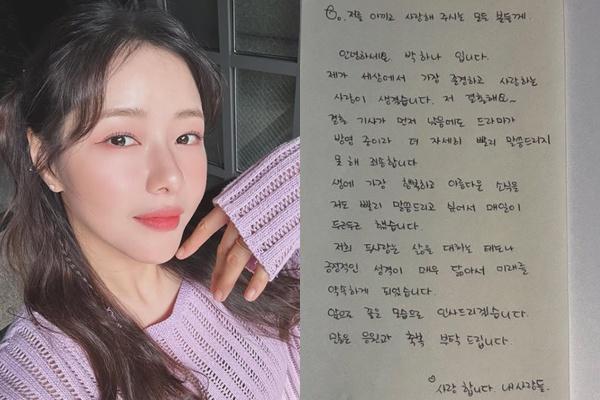 저를 아끼고 사랑해 주시는 모든 분들께.
안녕하세요. 박하나 입니다.
제가 세상에서 가장 존경하고 사랑하는
사람이 생겼습니다. 저 결혼해요~
결혼 기사가 먼저 났음에도 드라마가
방영 중이라 더 자세히 빨리 말씀드리지
못 해 죄송합니다
생에 가장 행복하고 아름다운 소식을
저도 빨리 말씀드리고 싶어서 매일이
두근두근 했습니다.
저희 두사람은 삶을 대하는 태도나
긍정적인 성격이 매우 닮아서 미래를
약속하게 되었습니다.
앞으로 좋은 모습으로 인사드리겠습니다.
많은 응원과 축복 부탁 드립니다.
사랑 합니다. 내사람들.